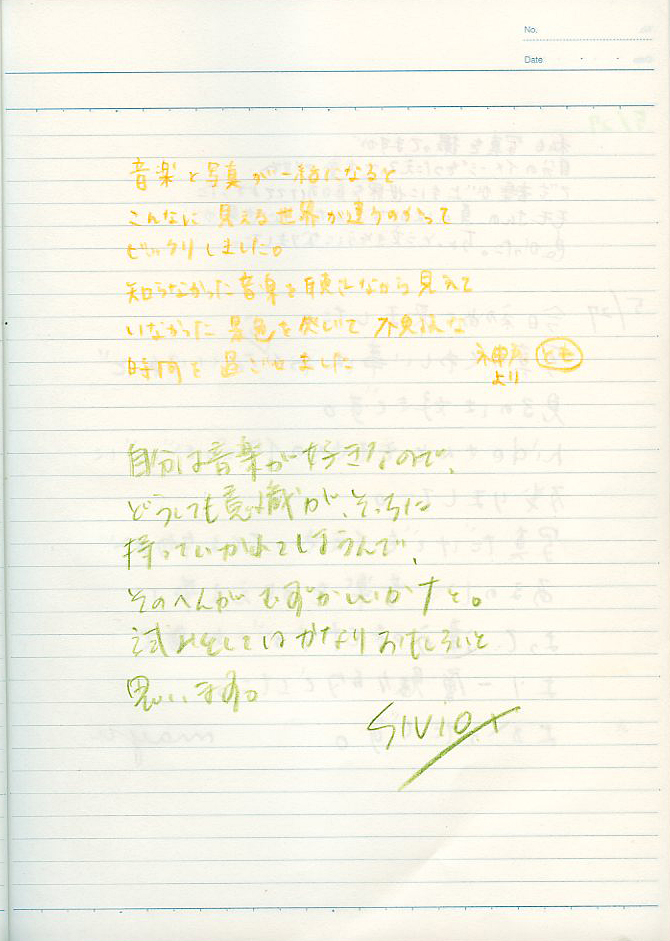 No.
Date
音楽と写真が一緒になると
こんなに見える世界が違うのかって
ビックリしました。
知らなかった音楽を聴きながら見えて
いなかった景色を感じて不思議な
時間を過ごせました
神戸 とも
より
自分は音楽が好きなので、
どうしても意識が、そっちに
持っていかれてしまうんで、
そのへんがむずかしいかナと。
試みとしてはかなりおもしろいと
思います。
SIVIO